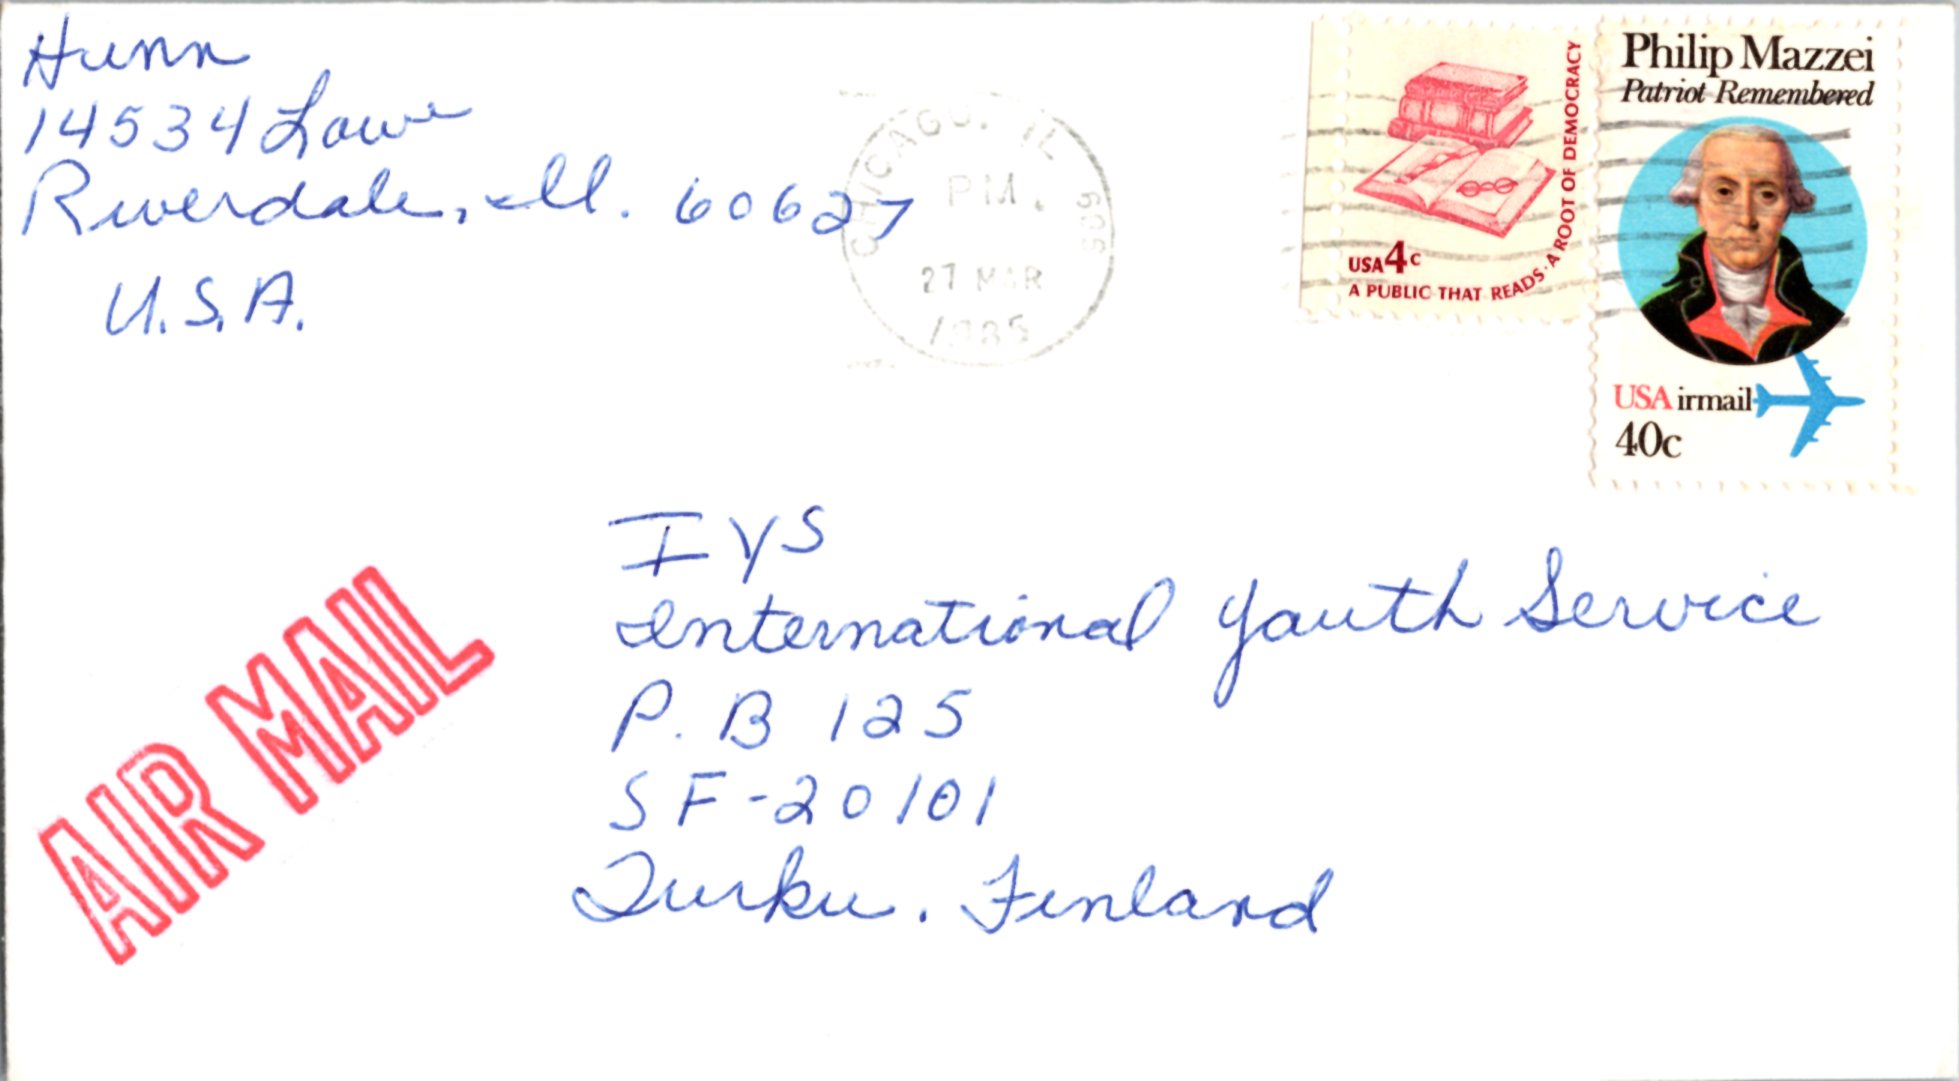 Hunn
14534 Lowe
Riverdale, Ill. 60627
U.S.A.
CHICAGO, IL 606
PM
27 MAR
1985
USA 4c
A PUBLIC THAT READS · A ROOT OF DEMOCRACY
Philip Mazzei
Patriot Remembered
USAirmail
40c
AIR MAIL
IYS
International Youth Service
P.B 125
SF-20101
Turku. Finland